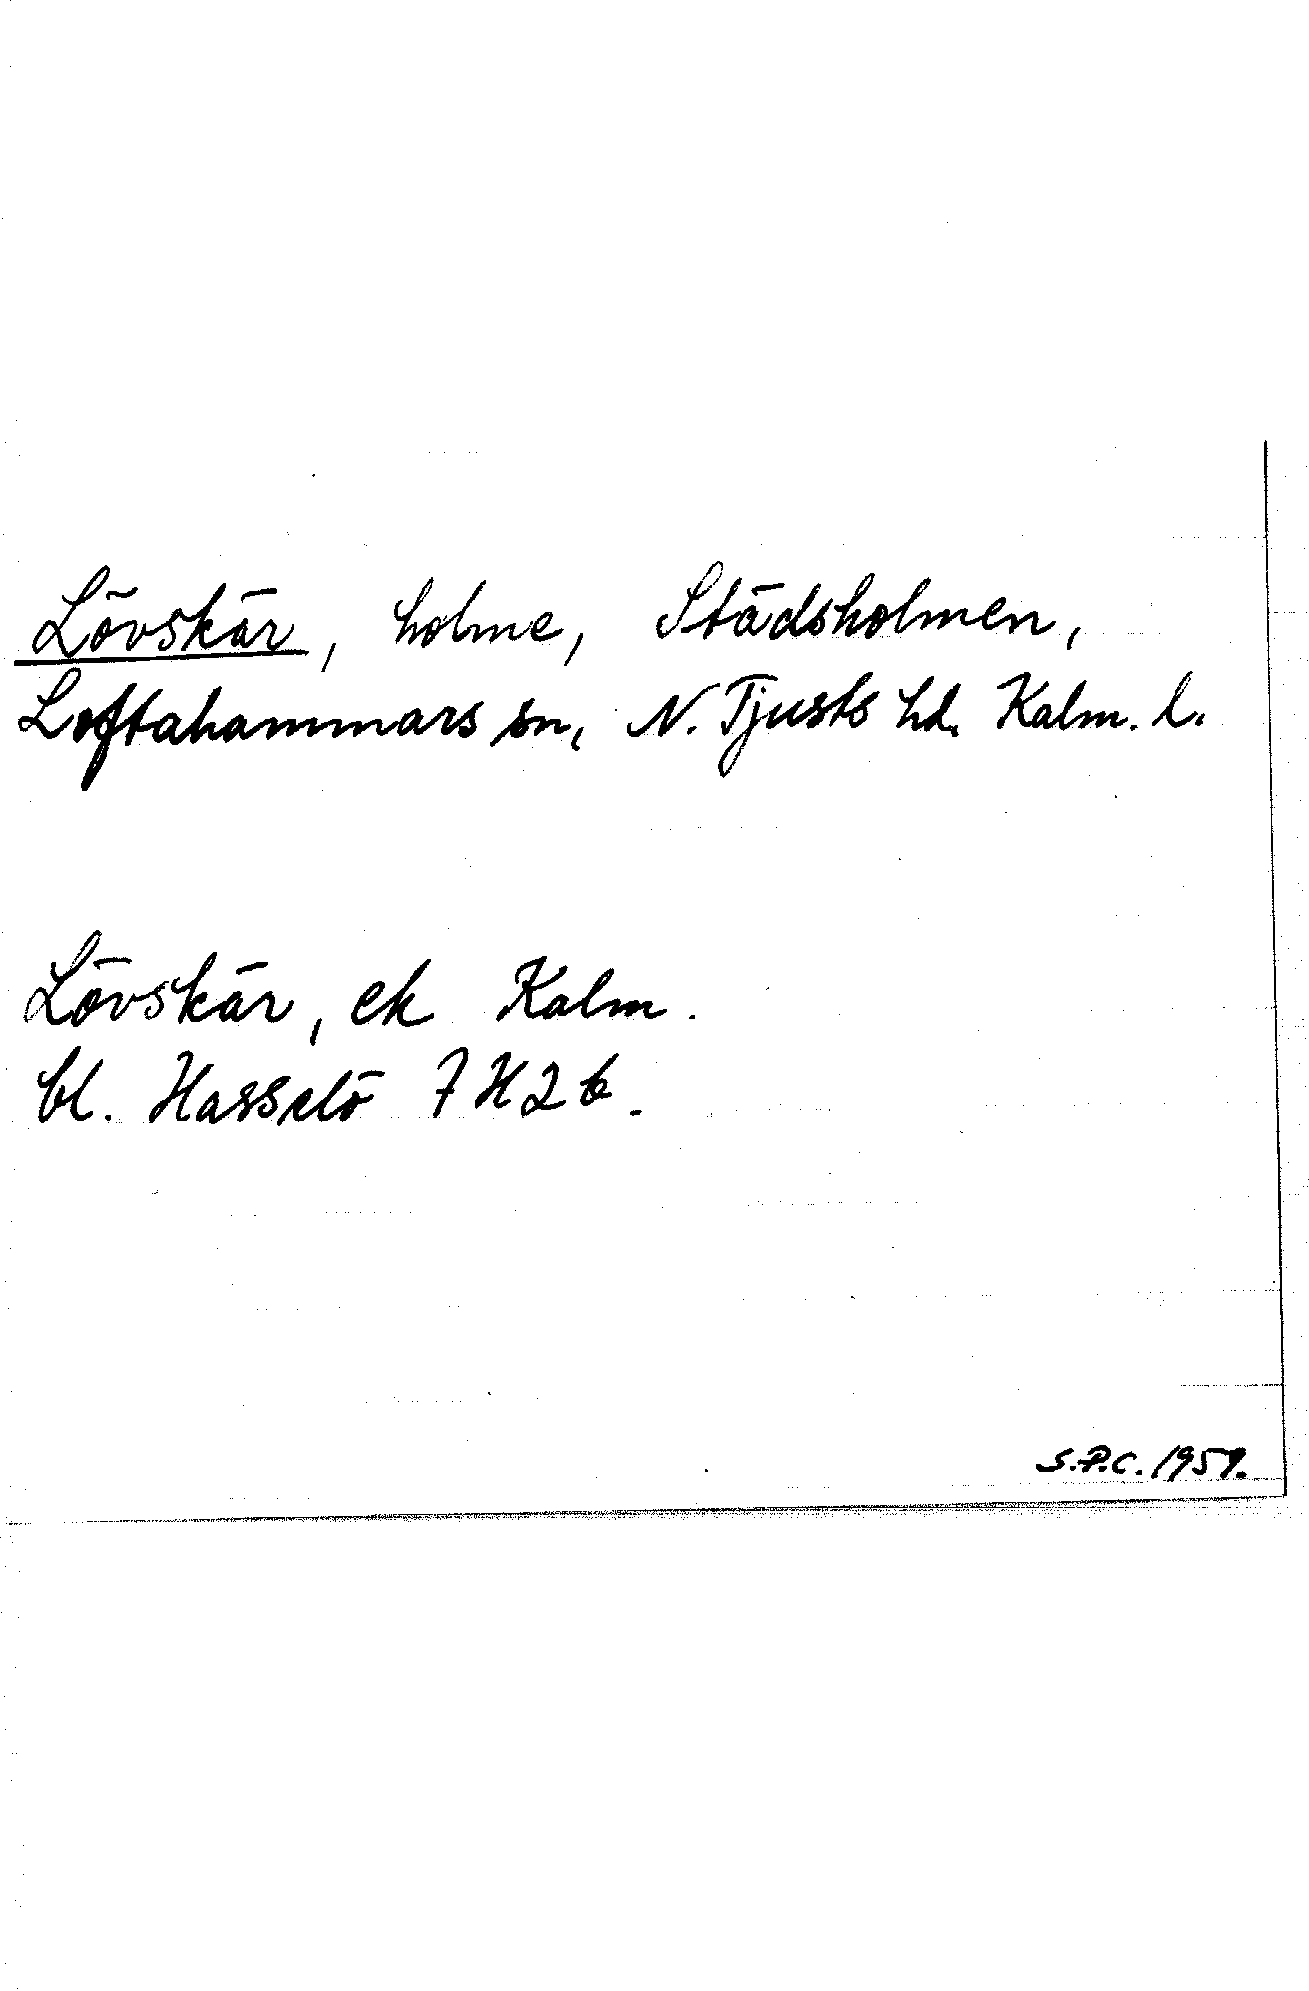 Lövskär, holme, Städsholmen,
Loftahammars sn, N. Tjusts hd. Kalm. l.
Lövskär, ek Kalm.
bl. Hasselö 7H2b.
S.P.C. 1959.